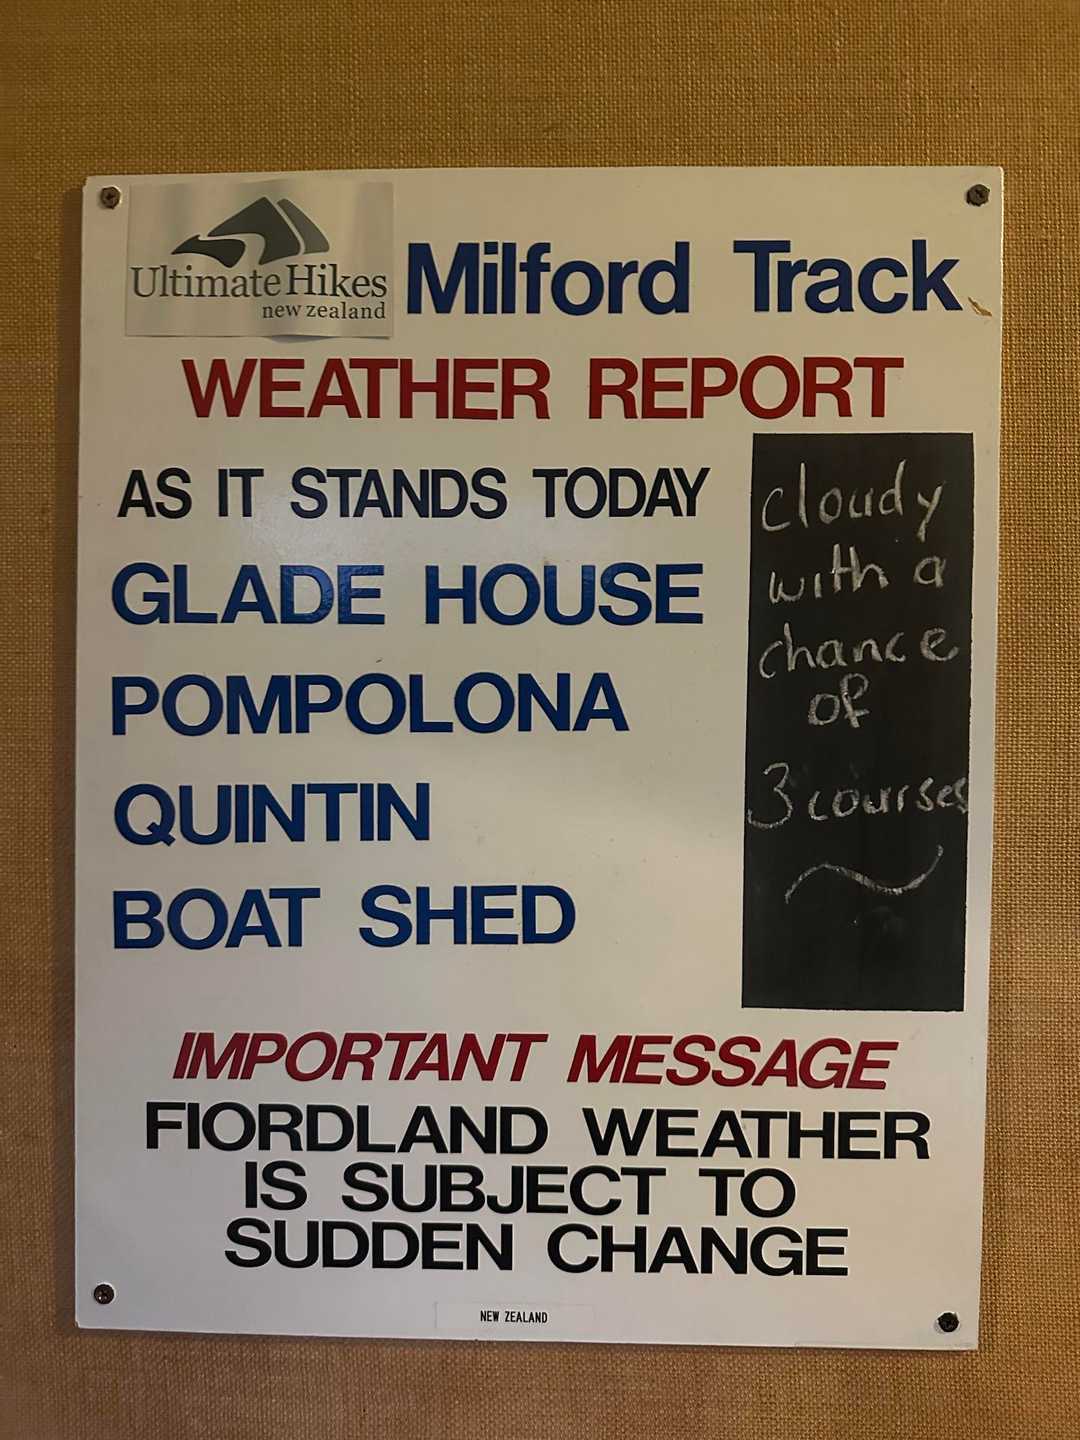 Ultimate Hikes
new zealand
Milford Track
WEATHER REPORT
AS IT STANDS TODAY
GLADE HOUSE
POMPOLONA
QUINTIN
BOAT SHED
cloudy
with a
chance
of
3 courses
IMPORTANT MESSAGE
FIORDLAND WEATHER
IS SUBJECT TO
SUDDEN CHANGE
NEW ZEALAND